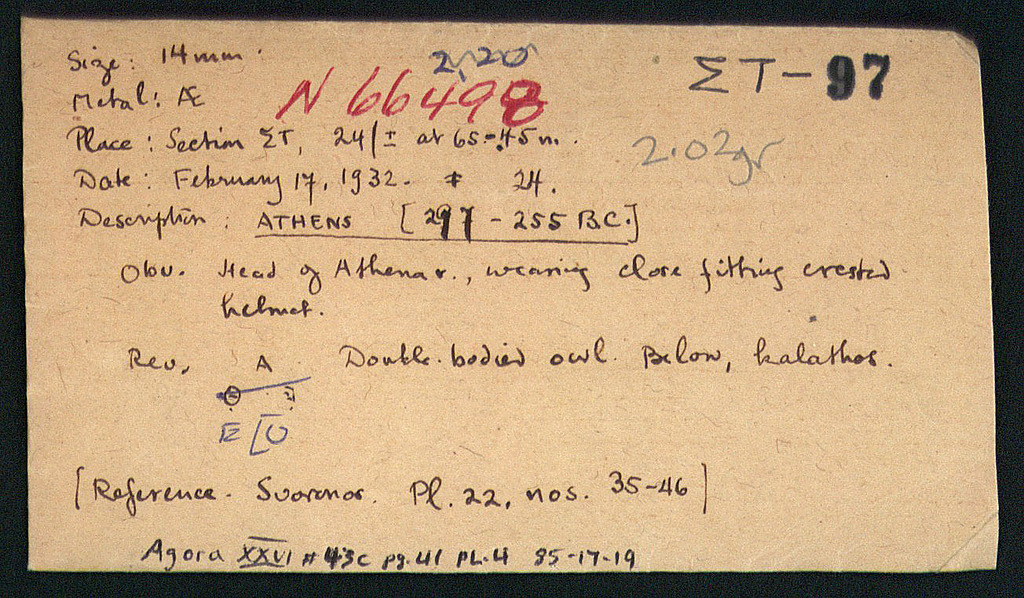 Size: 14mm.
2,20
ΣΤ-97
Metal: Æ
N 66498
Place: Section ΣΤ, 24/± at 65-45 m.
2.02gr
Date: February 17, 1932. # 24.
Description: ATHENS [297 - 255 B.C.]
Obv. Head of Athena r., wearing close fitting crested
helmet.
Rev. A Double-bodied owl. Below, kalathos.
E [Θ
[Reference. Svoronos. Pl. 22, nos. 35-46]
Agora XXVI # 43c pg. 41 PL. 4 85-17-19